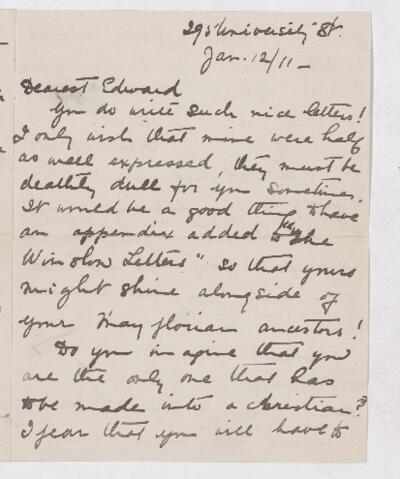 295 University St.
Jan. 12/11 -
Dearest Edward
You do write such nice letters!
I only wish that mine were half
as well expressed, they must be
deathly dull for you sometimes.
It would be a good thing to have
an appendix added to "the
Winslow Letters" so that yours
might shine alongside of
your Mayflorian ancestors!
Do you imagine that you
are the only one that has
to be made into a Christian?
I fear that you will have to